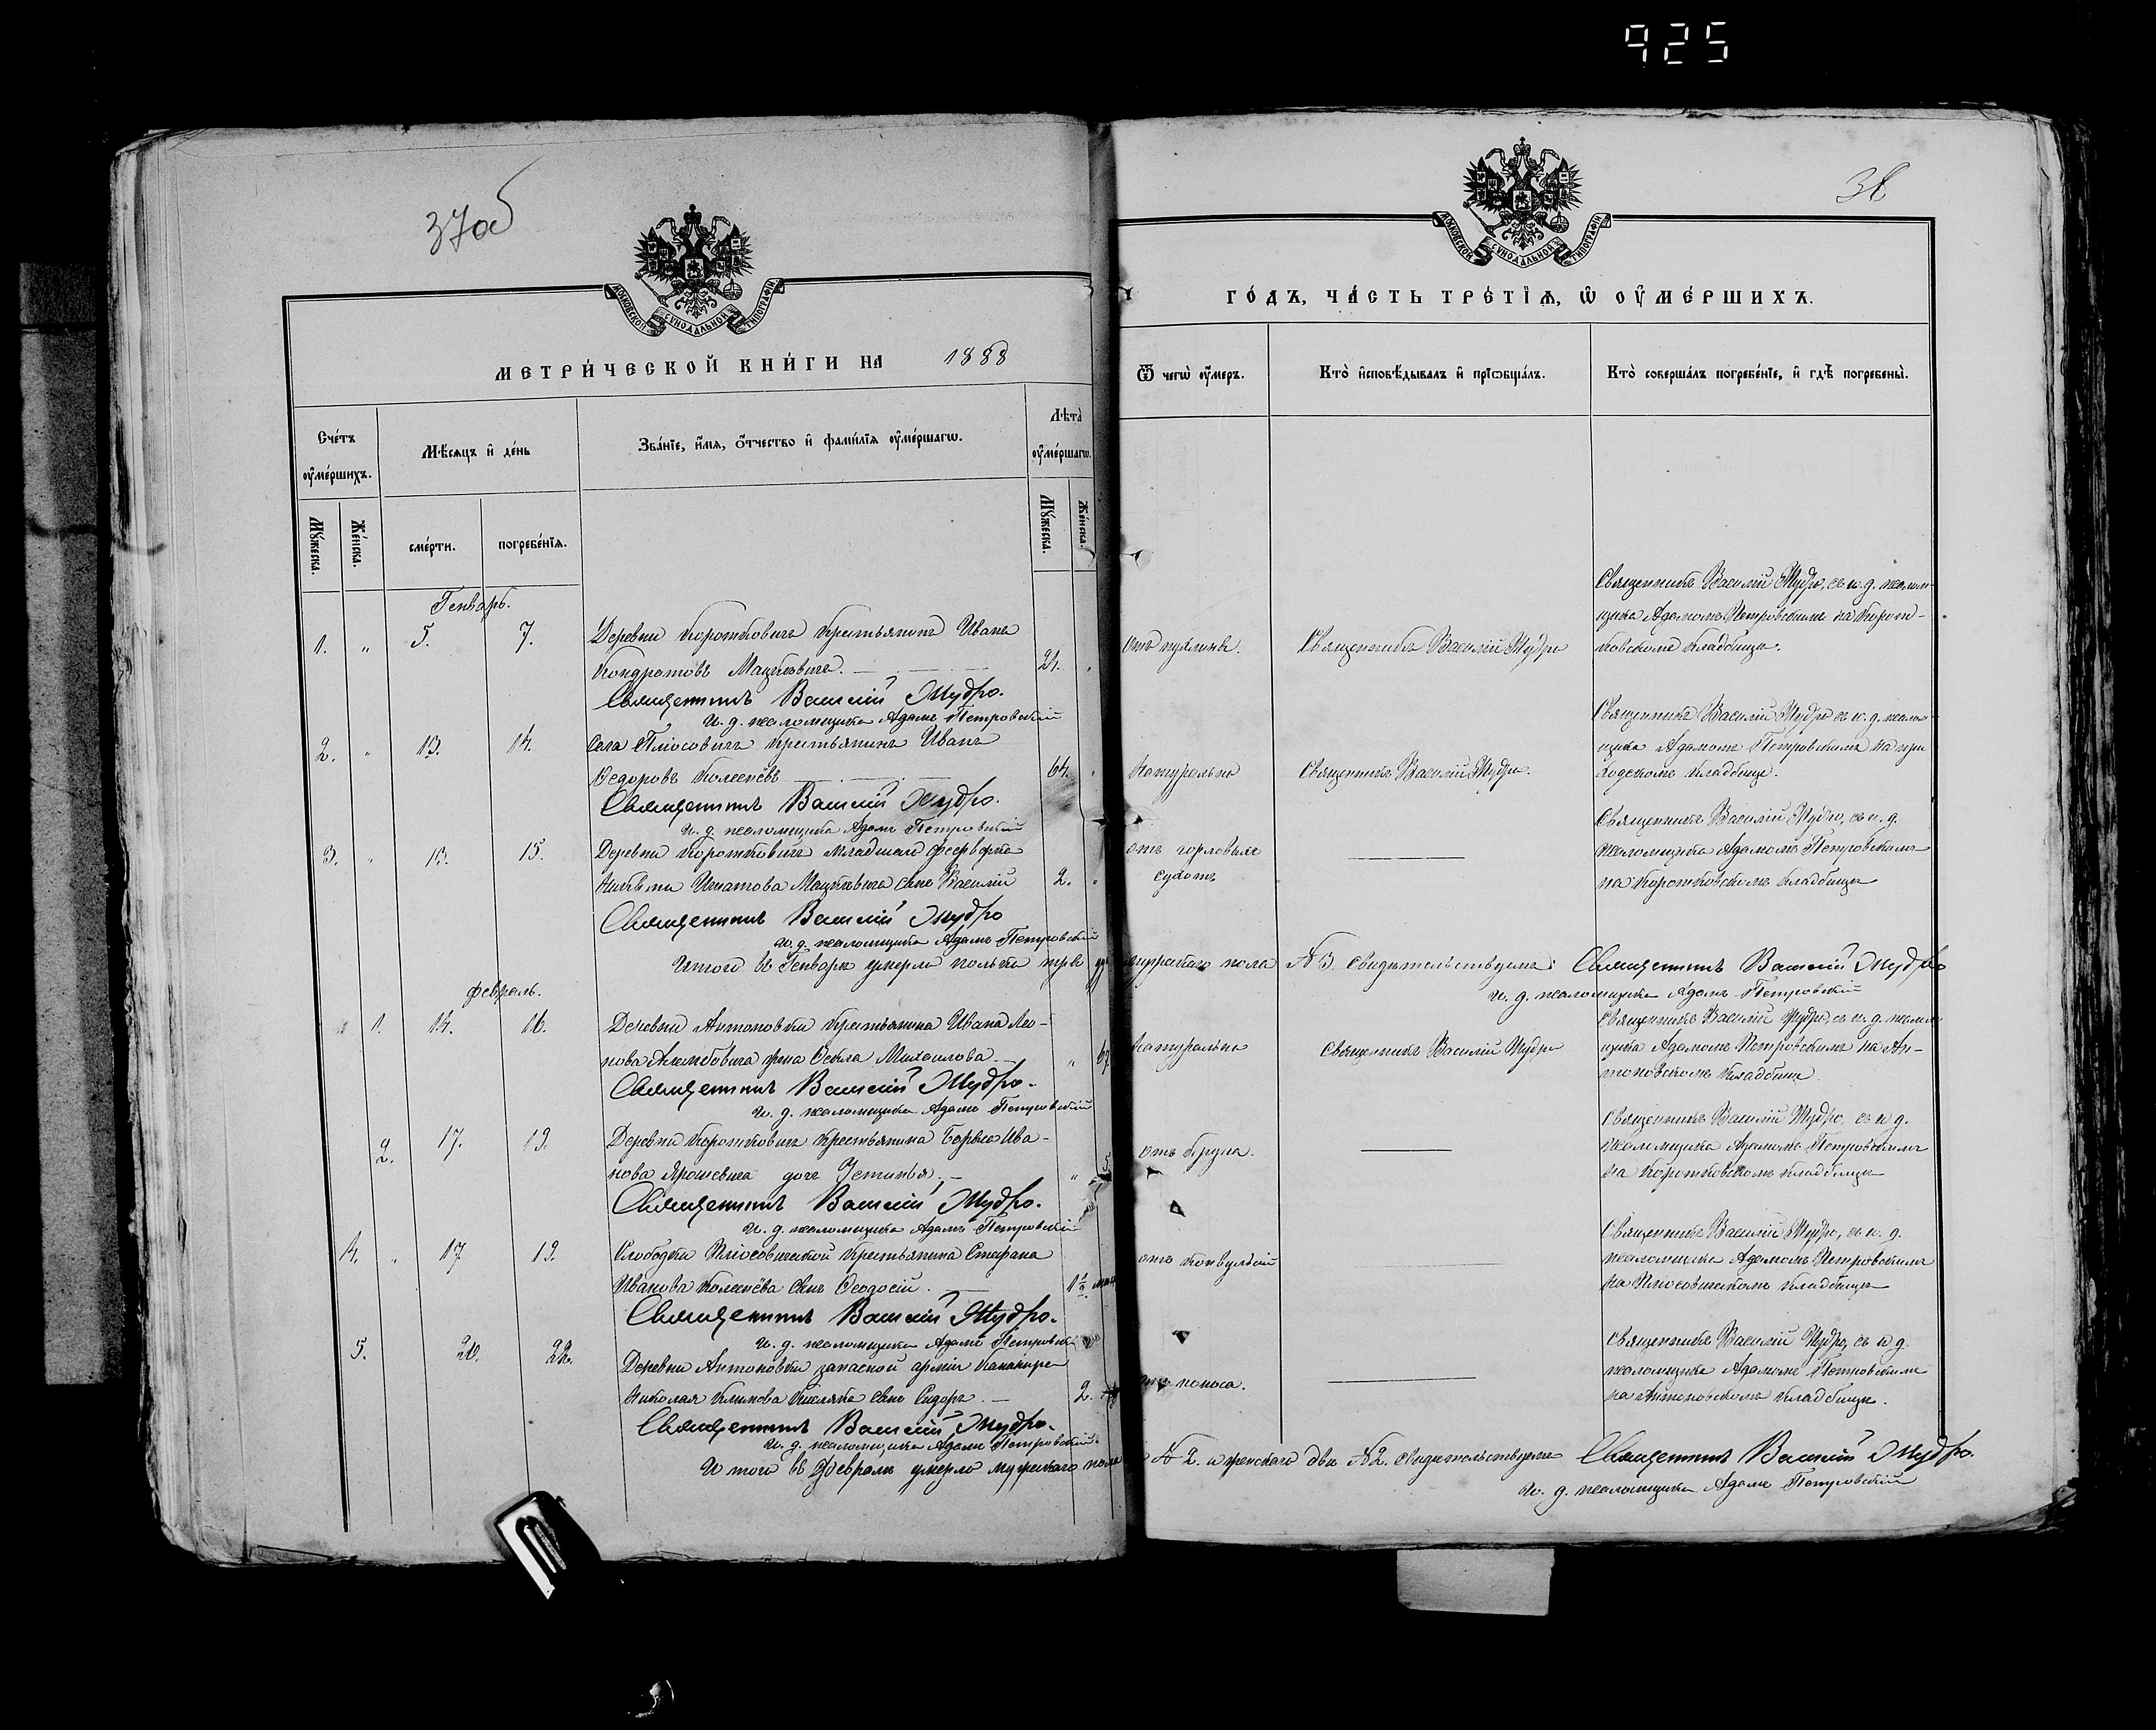 925
37об
38
МОСКОВСКОЙ СѴНОДАЛЬНОЙ ТИПОГРАФІИ
МОСКОВСКОЙ СѴНОДАЛЬНОЙ ТИПОГРАФІИ
МЕТРИ́ЧЕСКОЙ КНИ́ГИ НА 1888
ГО́ДЪ, ЧА́СТЬ ТРЕ́ТІѦ, Ѽ ОУ҆МЕ́РШИХЪ.
Сче́тъ оу҆ме́ршихъ.
Мѣ́сяцъ и҆ де́нь
Зва́нїе, и҆́мѧ, ѻ҆́тчество и҆ фами́лїѧ оу҆ме́ршагѡ.
Лѣ́та оу҆ме́ршагѡ.
Ѿ чегѡ̀ оу҆́меръ.
Кто̀ и҆сповѣ́дывалъ и҆ прїѡбща́лъ.
Кто̀ соверша́лъ погребе́нїе, и҆ гдѣ̀ погребены̀.
Мꙋ́жеска.
Же́нска.
сме́рти.
погребе́нїѧ.
Мꙋ́жеска.
Же́нска.
Генварь.
1. „ 5. 7. Деревни Коротковичъ крестьянинъ Иванъ
Кондратовъ Мацкевичъ. 21. „
Священникъ Василій Мудро.
И. д. псаломщика Адамъ Петровскій
Священникъ Василій Мудро
Священникъ Василій Мудро, съ и. д. псалом-
щика Адамомъ Петровскимъ на Корот-
ковскомъ кладбищѣ.
2. „ 13. 14. Села Плюсовичъ крестьянинъ Иванъ
Ѳедоровъ Колеснёвъ 64. „
Священникъ Василій Мудро.
И. д. псаломщика Адамъ Петровскій
натурально
Священникъ Василій Мудро.
Священникъ Василій Мудро съ и. д. псалом-
щика Адамомъ Петровскимъ на при
ходскомъ кладбищѣ.
3. „ 13. 15. Деревни Коротковичъ младшаго
Никиты Игнатова Мацкевича сынъ Василій 2. „
Священникъ Василій Мудро
И. д. псаломщика Адамъ Петровскій
отъ горловыхъ
Священникъ Василій Мудро, съ и. д.
псаломщика Адамомъ Петровскимъ
на Коротковскомъ кладбищѣ
Итого въ Генварѣ умерло только три мужскаго пола № 3. свидѣтельствуемъ: Священникъ Василій Мудро
И. д. псаломщика Адамъ Петровскій
Февраль.
1. 14. 16. Деревни Антоновки крестьянина Ивана Лео-
нова жена Ѳекла Михаилова. „ 67.
Священникъ Василій Мудро.
И. д. псаломщика Адамъ Петровскій
натурально
Священникъ Василій Мудро
Священникъ Василій Мудро, съ и. д. псалом-
щика Адамомъ Петровскимъ на Ан-
тоновскомъ кладбищѣ.
2. 17. 19. Деревни Коротковичъ крестьянина Ива-
нова Ярошевича дочь Устинья. „ 5
Священникъ Василій Мудро.
И. д. псаломщика Адамъ Петровскій
отъ крупа.
Священникъ Василій Мудро, съ и. д.
псаломщика Адамомъ Петровскимъ
на Коротковскомъ кладбищѣ
4. „ 17. 19. Слободки Плюсовичской крестьянина Стефана
Иванова Колеснёва сынъ Ѳеодосій. 1 1/2
Священникъ Василій Мудро.
И. д. псаломщика Адамъ Петровскій
отъ конвульсій
Священникъ Василій Мудро, съ и. д.
псаломщика Адамомъ Петровскимъ
на Плюсовичскомъ кладбищѣ
5. 20. 22. Деревни Антоновки запасной арміи канонира
Николая Климова сынъ Сидоръ. 2.
Священникъ Василій Мудро.
И. д. псаломщика Адамъ Петровскій.
отъ поноса.
Священникъ Василій Мудро, съ и. д.
псаломщика Адамомъ Петровскимъ
на Антоновскомъ кладбищѣ.
Итого въ Февралѣ умерло мужескаго пола № 2. и женскаго два № 2. свидѣтельствуемъ Священникъ Василій Мудро.
И. д. псаломщика Адамъ Петровскій